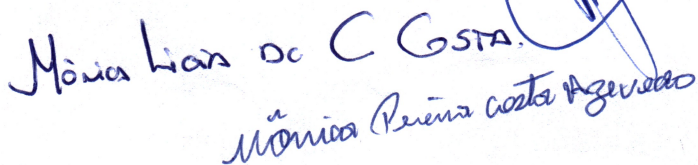 Mônica Licia de C Costa.
Mônica Pereira Costa Azevedo